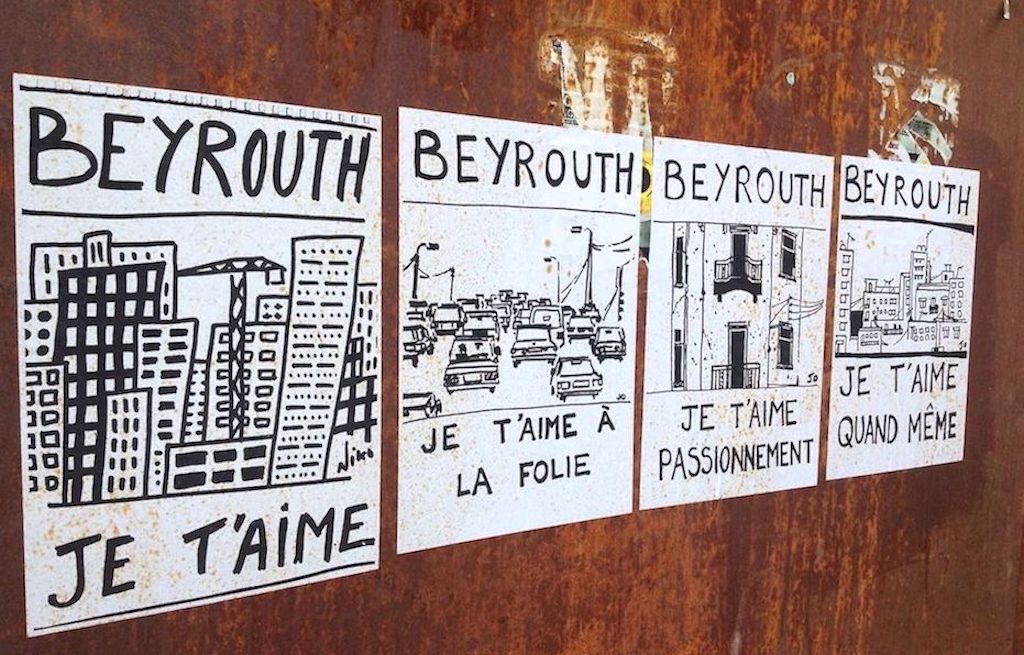 BEYROUTH
Niko
JE T'AIME
BEYROUTH
JO
JE T'AIME À
LA FOLIE
BEYROUTH
JO
JE T'AIME
PASSIONNEMENT
BEYROUTH
JO
JE T'AIME
QUAND MÊME